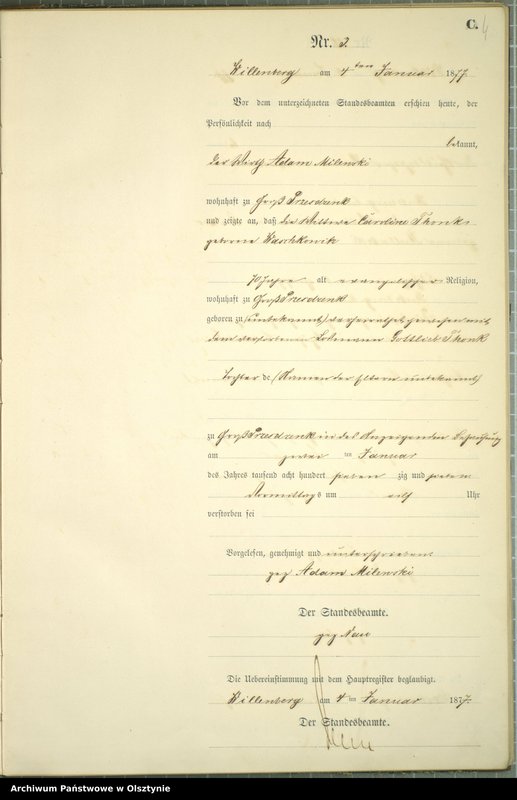 C.
4
Nr. 3.
Willenberg am 4ten Januar 1877
Vor dem unterzeichneten Standesbeamten erschien heute, der
Persönlichkeit nach
bekannt,
der Wirth Adam Milewski
wohnhaft zu Groß Przesdzienk
und zeigte an, daß die Wittwe Caroline Thonk
geborne Waschkowik
70 Jahre alt evangelischer Religion,
wohnhaft zu Groß Przesdzienk
geboren zu (unbekannt) verheirathet gewesen mit
dem verstorbenen Losmann Gottlieb Thonk
Tochter de (Namen der Eltern unbekannt)
zu Groß Przesdzienk in des Anzeigenden Behausung
am zweiten ten Januar
des Jahres tausend acht hundert sieben zig und sieben
Vormittags um elf Uhr
verstorben sei
Vorgelesen, genehmigt und unterschrieben
gez Adam Milewski
Der Standesbeamte.
gez
Die Uebereinstimmung mit dem Hauptregister beglaubigt.
Willenberg am 4 ten Januar 1877.
Der Standesbeamte.
Archiwum Państwowe w Olsztynie